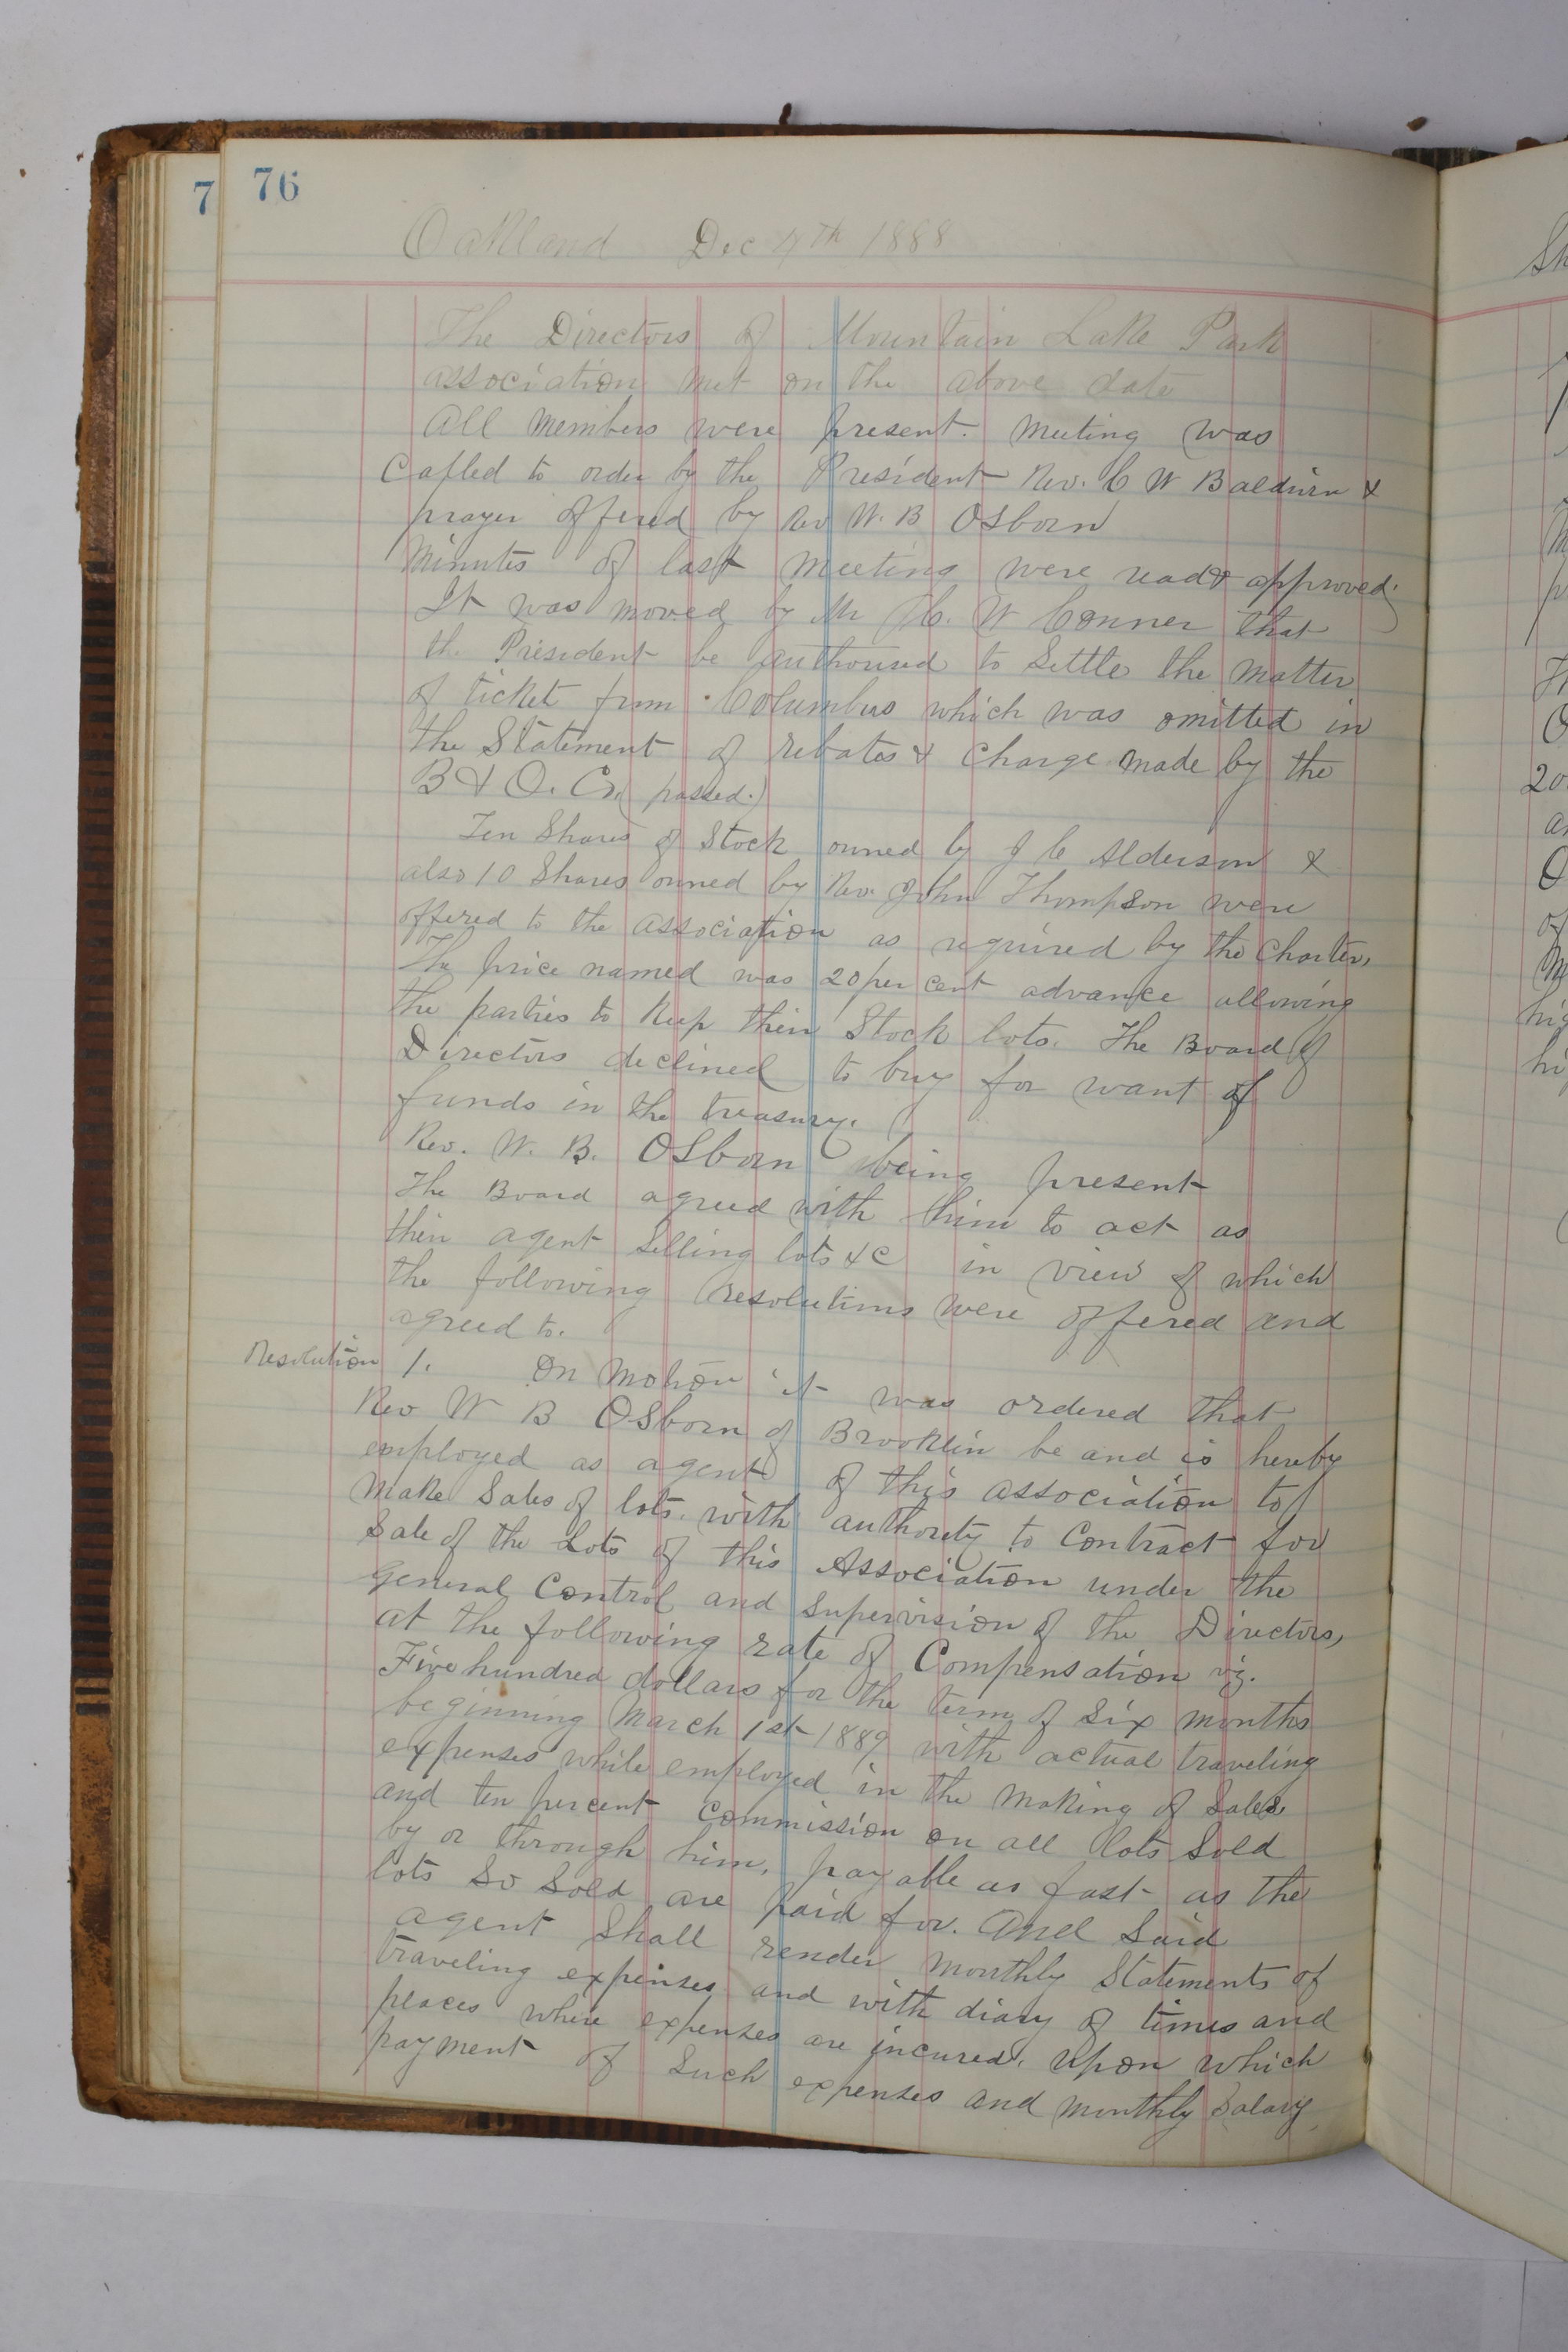 76
7
Oakland Dec 4th 1888
The Directors of Mountain Lake Park
association met on the above date
All members were present. Meeting was
Called to order by the President Rev. C W Baldwin &
prayer offered by Rev W. B Osborn
Minutes of last meeting were read & approved.
It was moved by Mr C. W Conner that
the President be authorised to Settle the matter
of ticket from Columbus which was omitted in
the Statement of rebates & Charge made by the
B & O. Co. (passed.)
Ten Shares of Stock owned by J C Alderson &
also 10 Shares owned by Rev. John Thompson were
offered to the association as required by the Charter,
The price named was 20 per cent advance allowing
the parties to Keep their Stock lots. The Board of
Directors declined to buy for want of
funds in the treasury.
Rev. W. B. Osborn being present
The Board agreed with him to act as
their agent Selling lots &c in view of which
the following resolutions were offered and
agreed to.
Resolution 1. On Motion it was ordered that
Rev W B Osborn of Brooklin be and is hereby
employed as agent of this association to
Make Sales of lots. with authority to Contract for
Sale of the Lots of this Association under the
General Control and Supervision of the Directors,
at the following rate of Compensation viz.
Five hundred dollars for the term of Six months
beginning March 1st 1889 with actual traveling
expenses while employed in the Making of Sales
and ten percent Commission on all lots Sold
by or through him, payable as fast as the
lots So Sold are paid for. And Said
agent Shall render Monthly Statements of
traveling expenses and with diary of times and
places where expenses are incured, upon which
payment of Such expenses and monthly Salary